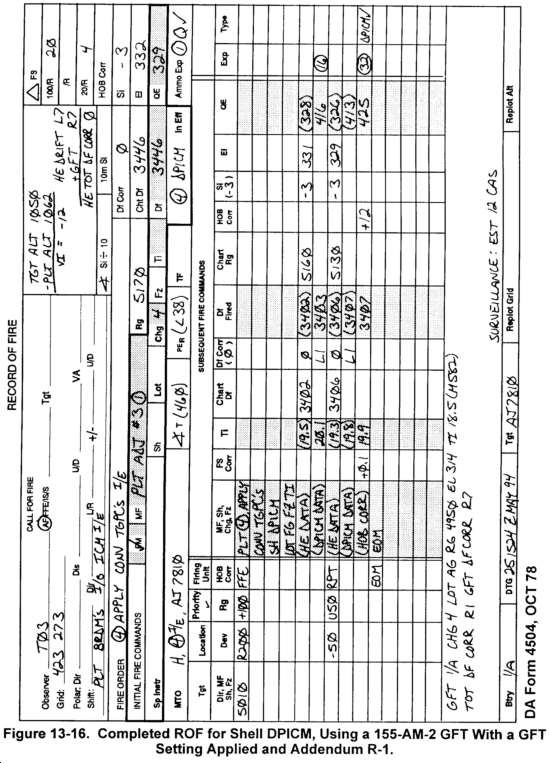 RECORD OF FIRE
CALL FOR FIRE
Observer T03 AF/FFE/IS/S Tgt
Grid: 423 273
Polar: Dir Dis U/D VA
Shift: L/R +/- U/D
PLT BRDM'S I/E ICM I/E
TGT ALT 1050
-PLT ALT 1062
VI = -12
HE DRIFT L7
+GFT R7
HE TOT DF CORR 0
△ FS
100/R 20
/R
20/R 4
HOB Corr
FIRE ORDER ④ APPLY CONV TGPC'S I/E
∢ Si ÷ 10 10m Si
Df Corr 0 Si - 3
INITIAL FIRE COMMANDS FM MF PLT ADJ #3 ①
Rg 5170 Cht Df 3446 El 332
Sp Instr Sh Lot Chg 4 Fz Ti Df 3446 QE 329
MTO H, ④ I/E, AJ 7810
∢ T (460) PER (L38) TF ④ DPICM In Eff Ammo Exp ① Q√
Tgt Location Priority Firing Unit
SUBSEQUENT FIRE COMMANDS
Dir, MF, Sh, Fz Dev Rg HOB Corr MF, Sh, Chg, Fz FS Corr Ti Chart Df Df Corr (0) Df Fired Chart Rg HOB Corr Si (-3) El QE Exp Type
5010 R200 +100 FFE PLT ④ APPLY
CONV TGPC'S
SH DPICM
LOT FG FZ TI
(HE DATA) (19.5) 3402 0 (3402) 5160 -3 331 (328)
(DPICM DATA) 20.1 L1 3403 416 ⑯
-50 U50 RPT (HE DATA) (19.3) 3406 0 (3406) 5130 -3 329 (326)
(DPICM DATA) (19.8) L1 (3407) (413)
(HOB CORR) +0.1 19.9 3407 +12 425 ㉜ DPICM√
EOM EOM
GFT 1/A CHG 4 LOT AG RG 4950 EL 314 TI 18.5 (M582)
TOT DF CORR R1 GFT DF CORR R7
SURVEILLANCE: EST 12 CAS
Btry 1/A DTG 251524 Z MAY 94 Tgt AJ7810 Replot Grid Replot Alt
DA Form 4504, OCT 78
Figure 13-16. Completed ROF for Shell DPICM, Using a 155-AM-2 GFT With a GFT
Setting Applied and Addendum R-1.